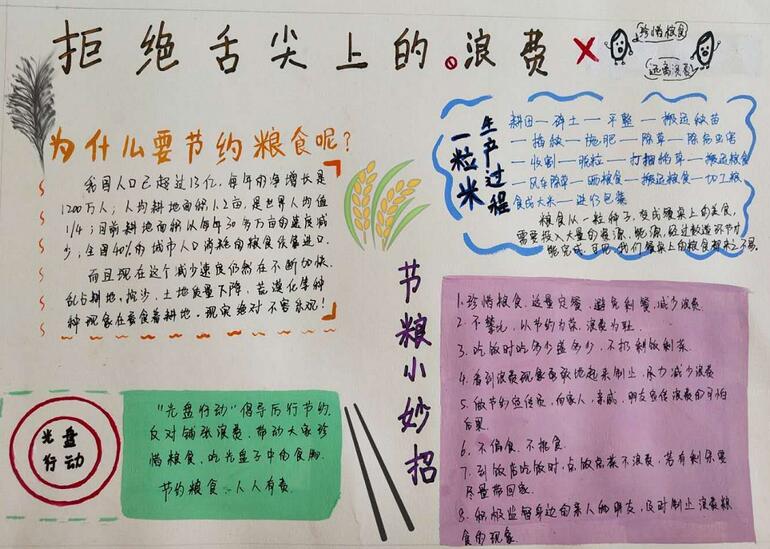 拒绝舌尖上的浪费
珍惜粮食
远离浪费
为什么要节约粮食呢?
我国人口已超过13亿,每年的净增长是
1200万人;人均耕地面积1.2亩,是世界人均值
1/4;目前耕地面积以每年30多万亩的速度减
少,全国40%的城市人口消耗的粮食依靠进口.
而且现在这个减少速度仍然在不断加快.
乱占耕地,挖沙,土地质量下降,荒漠化等种
种现象在蚕食着耕地.现实绝对不容乐观!
一粒米
生产过程
耕田—碎土—平整—搬运秧苗
—插秧—施肥—除草—除病虫害
—收割—脱粒—打捆稻草—搬运粮食
—风车除草—晒粮食—搬运粮食—加工粮
食成大米—进行包装
粮食从一粒种子,变成餐桌上的美食,
需要投入大量的资源,能源,经过数道环节才
能完成,可见,我们餐桌上的粮食都来之不易.
节粮小妙招
1.珍惜粮食,适量定餐,避免剩餐,减少浪费.
2.不攀比,以节约为荣,浪费为耻.
3.吃饭时吃多少盛多少,不扔剩饭剩菜.
4.看到浪费现象勇敢地起来制止,尽力减少浪费
5.做节约宣传员,向家人,亲戚,朋友宣传浪费的可怕
后果.
6.不偏食,不挑食.
7.到饭店吃饭时,点饭点菜不浪费,若有剩余要
尽量带回家.
8.积极监督身边的亲人和朋友,及时制止浪费粮
食的现象.
光盘
行动
“光盘行动”倡导厉行节约.
反对铺张浪费,带动大家珍
惜粮食、吃光盘子中的食物.
节约粮食、人人有责.